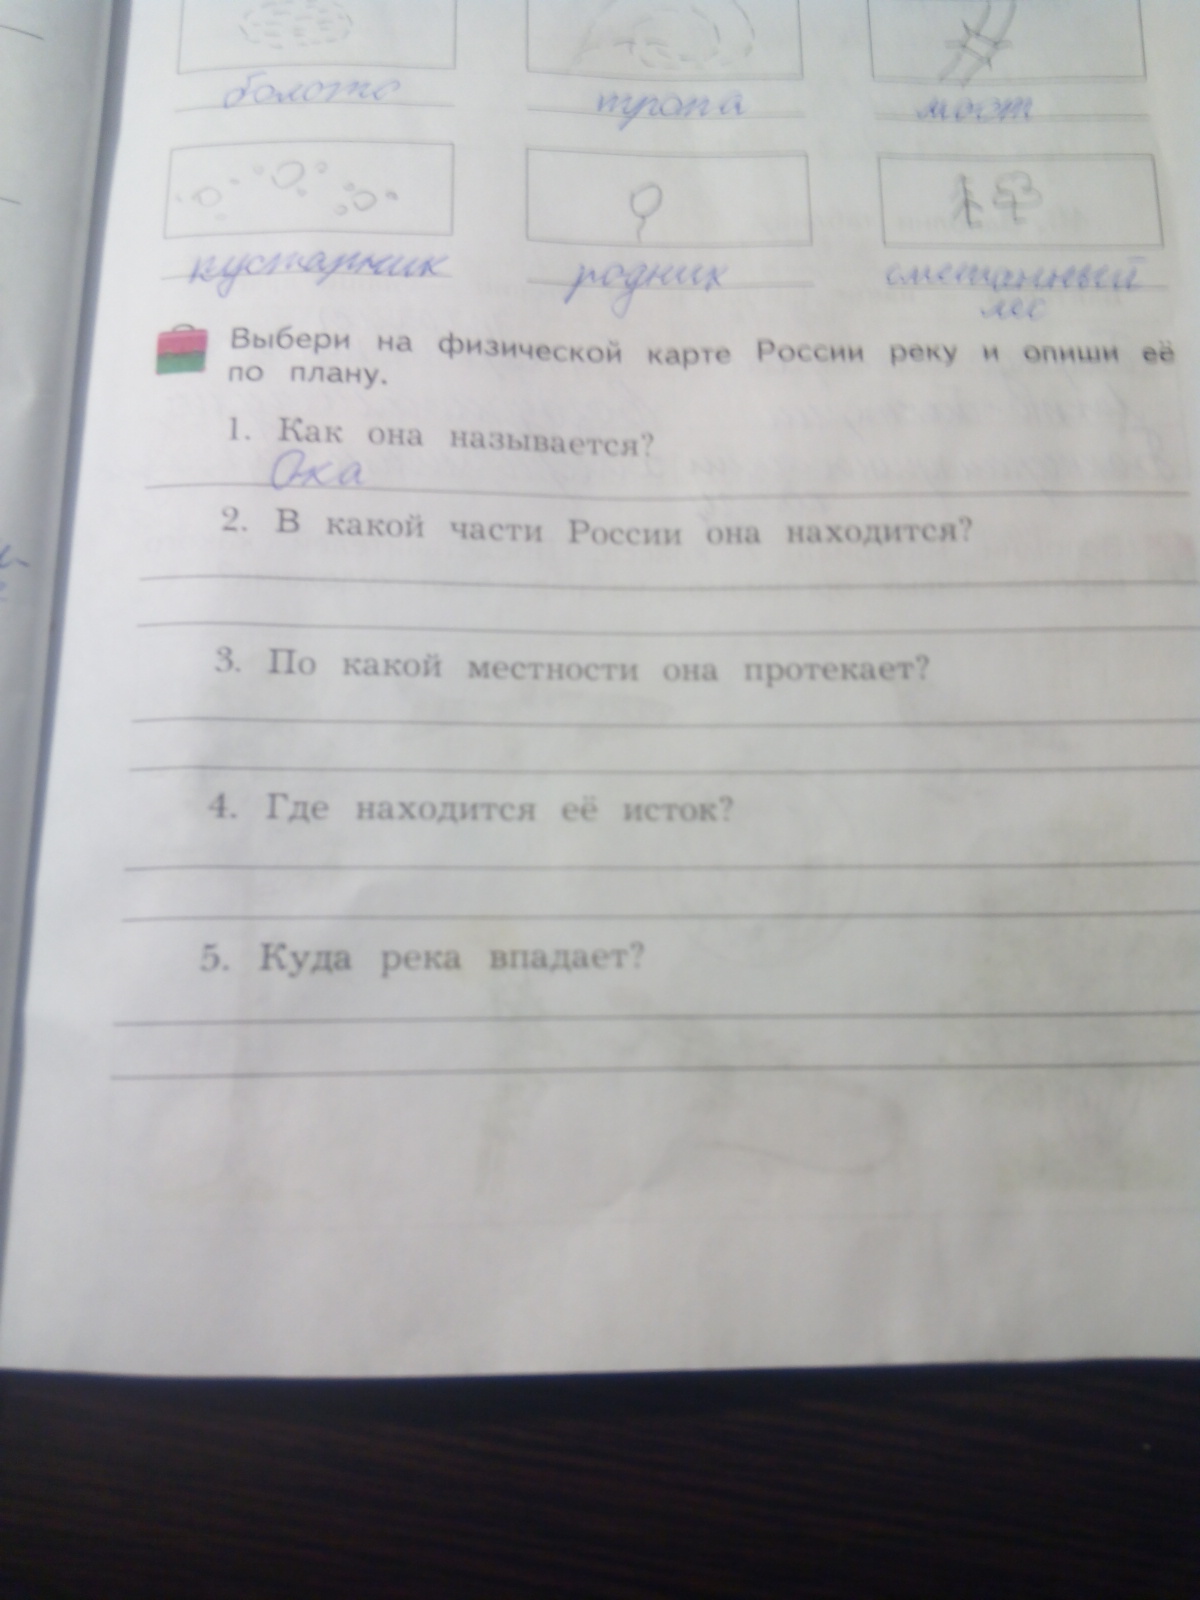 болото тропа мост
кустарник родник смешанный
лес
Выбери на физической карте России реку и опиши её
по плану.
1. Как она называется?
Ока
2. В какой части России она находится?
3. По какой местности она протекает?
4. Где находится её исток?
5. Куда река впадает?